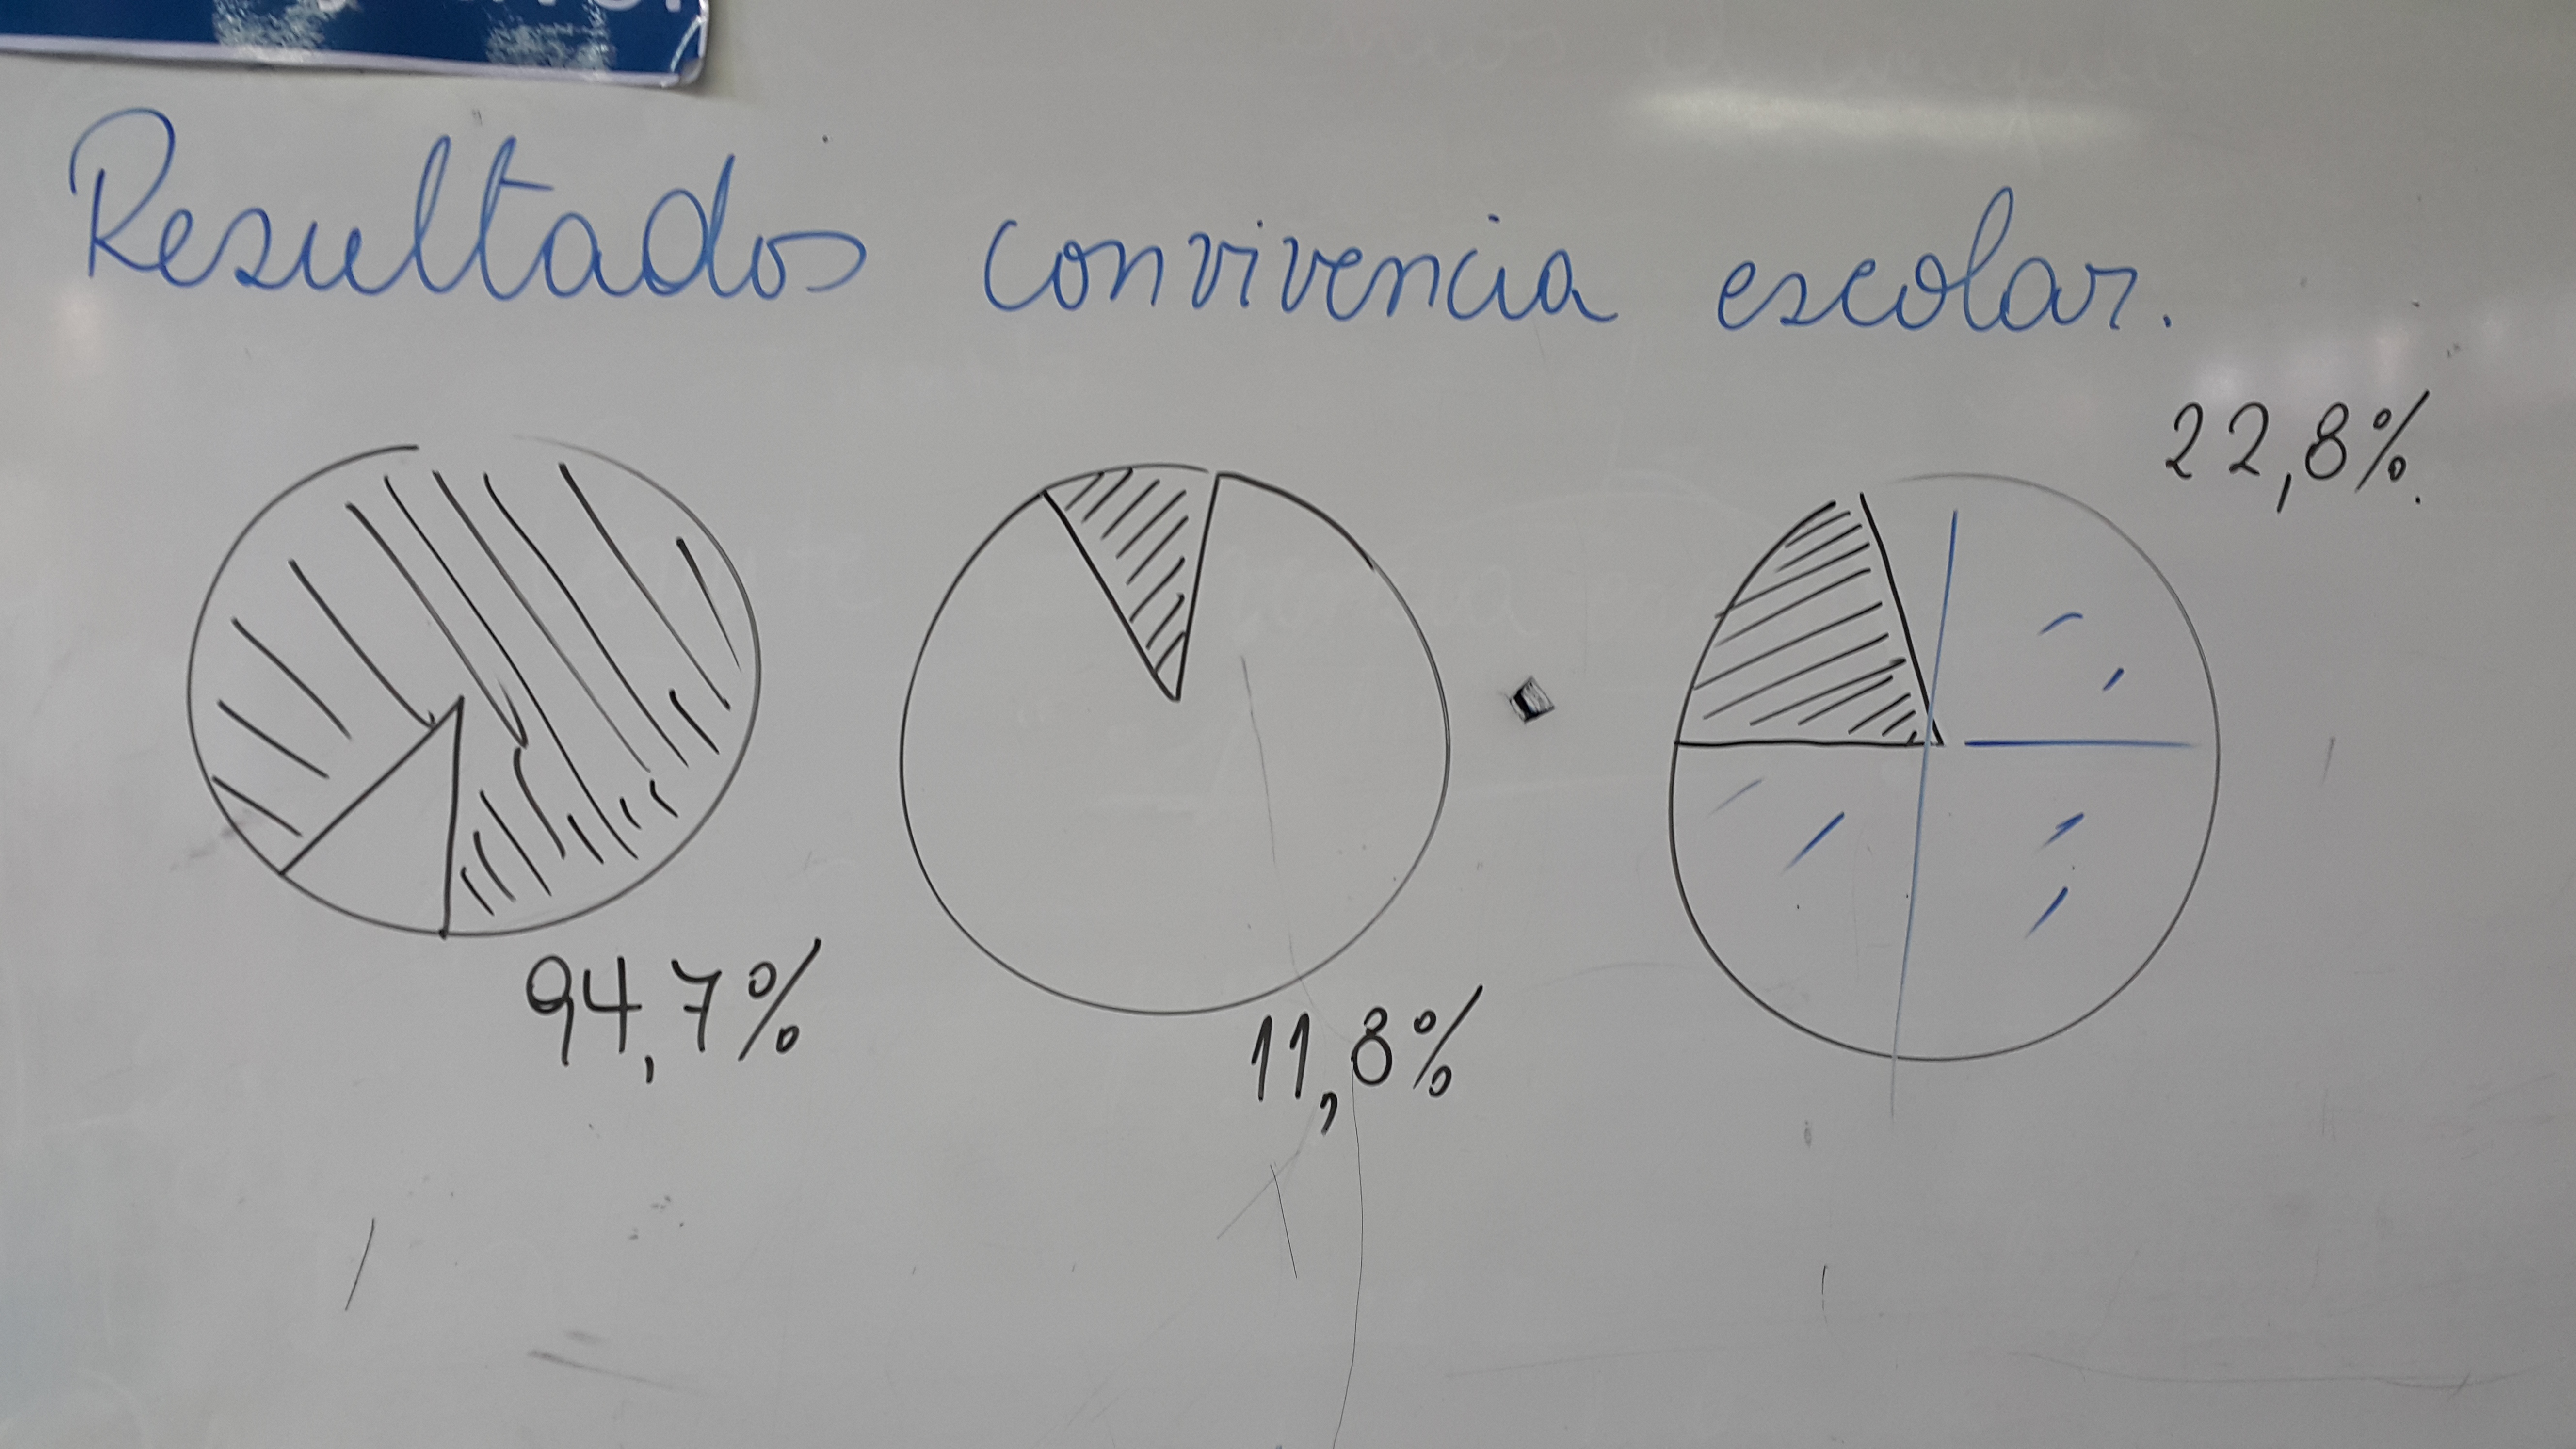 Resultados convivencia escolar.
22,8%.
94,7%
11,8%